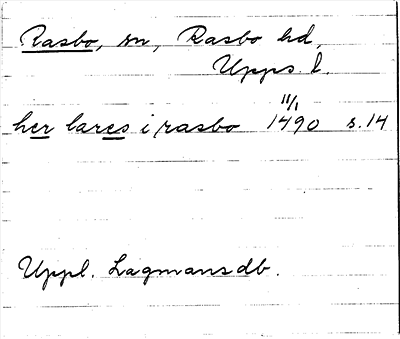 Rasbo, sn, Rasbo hd,
Upps. l.
her lares i rasbo 11/1 1490 s. 14
Uppl. Lagmansdb.